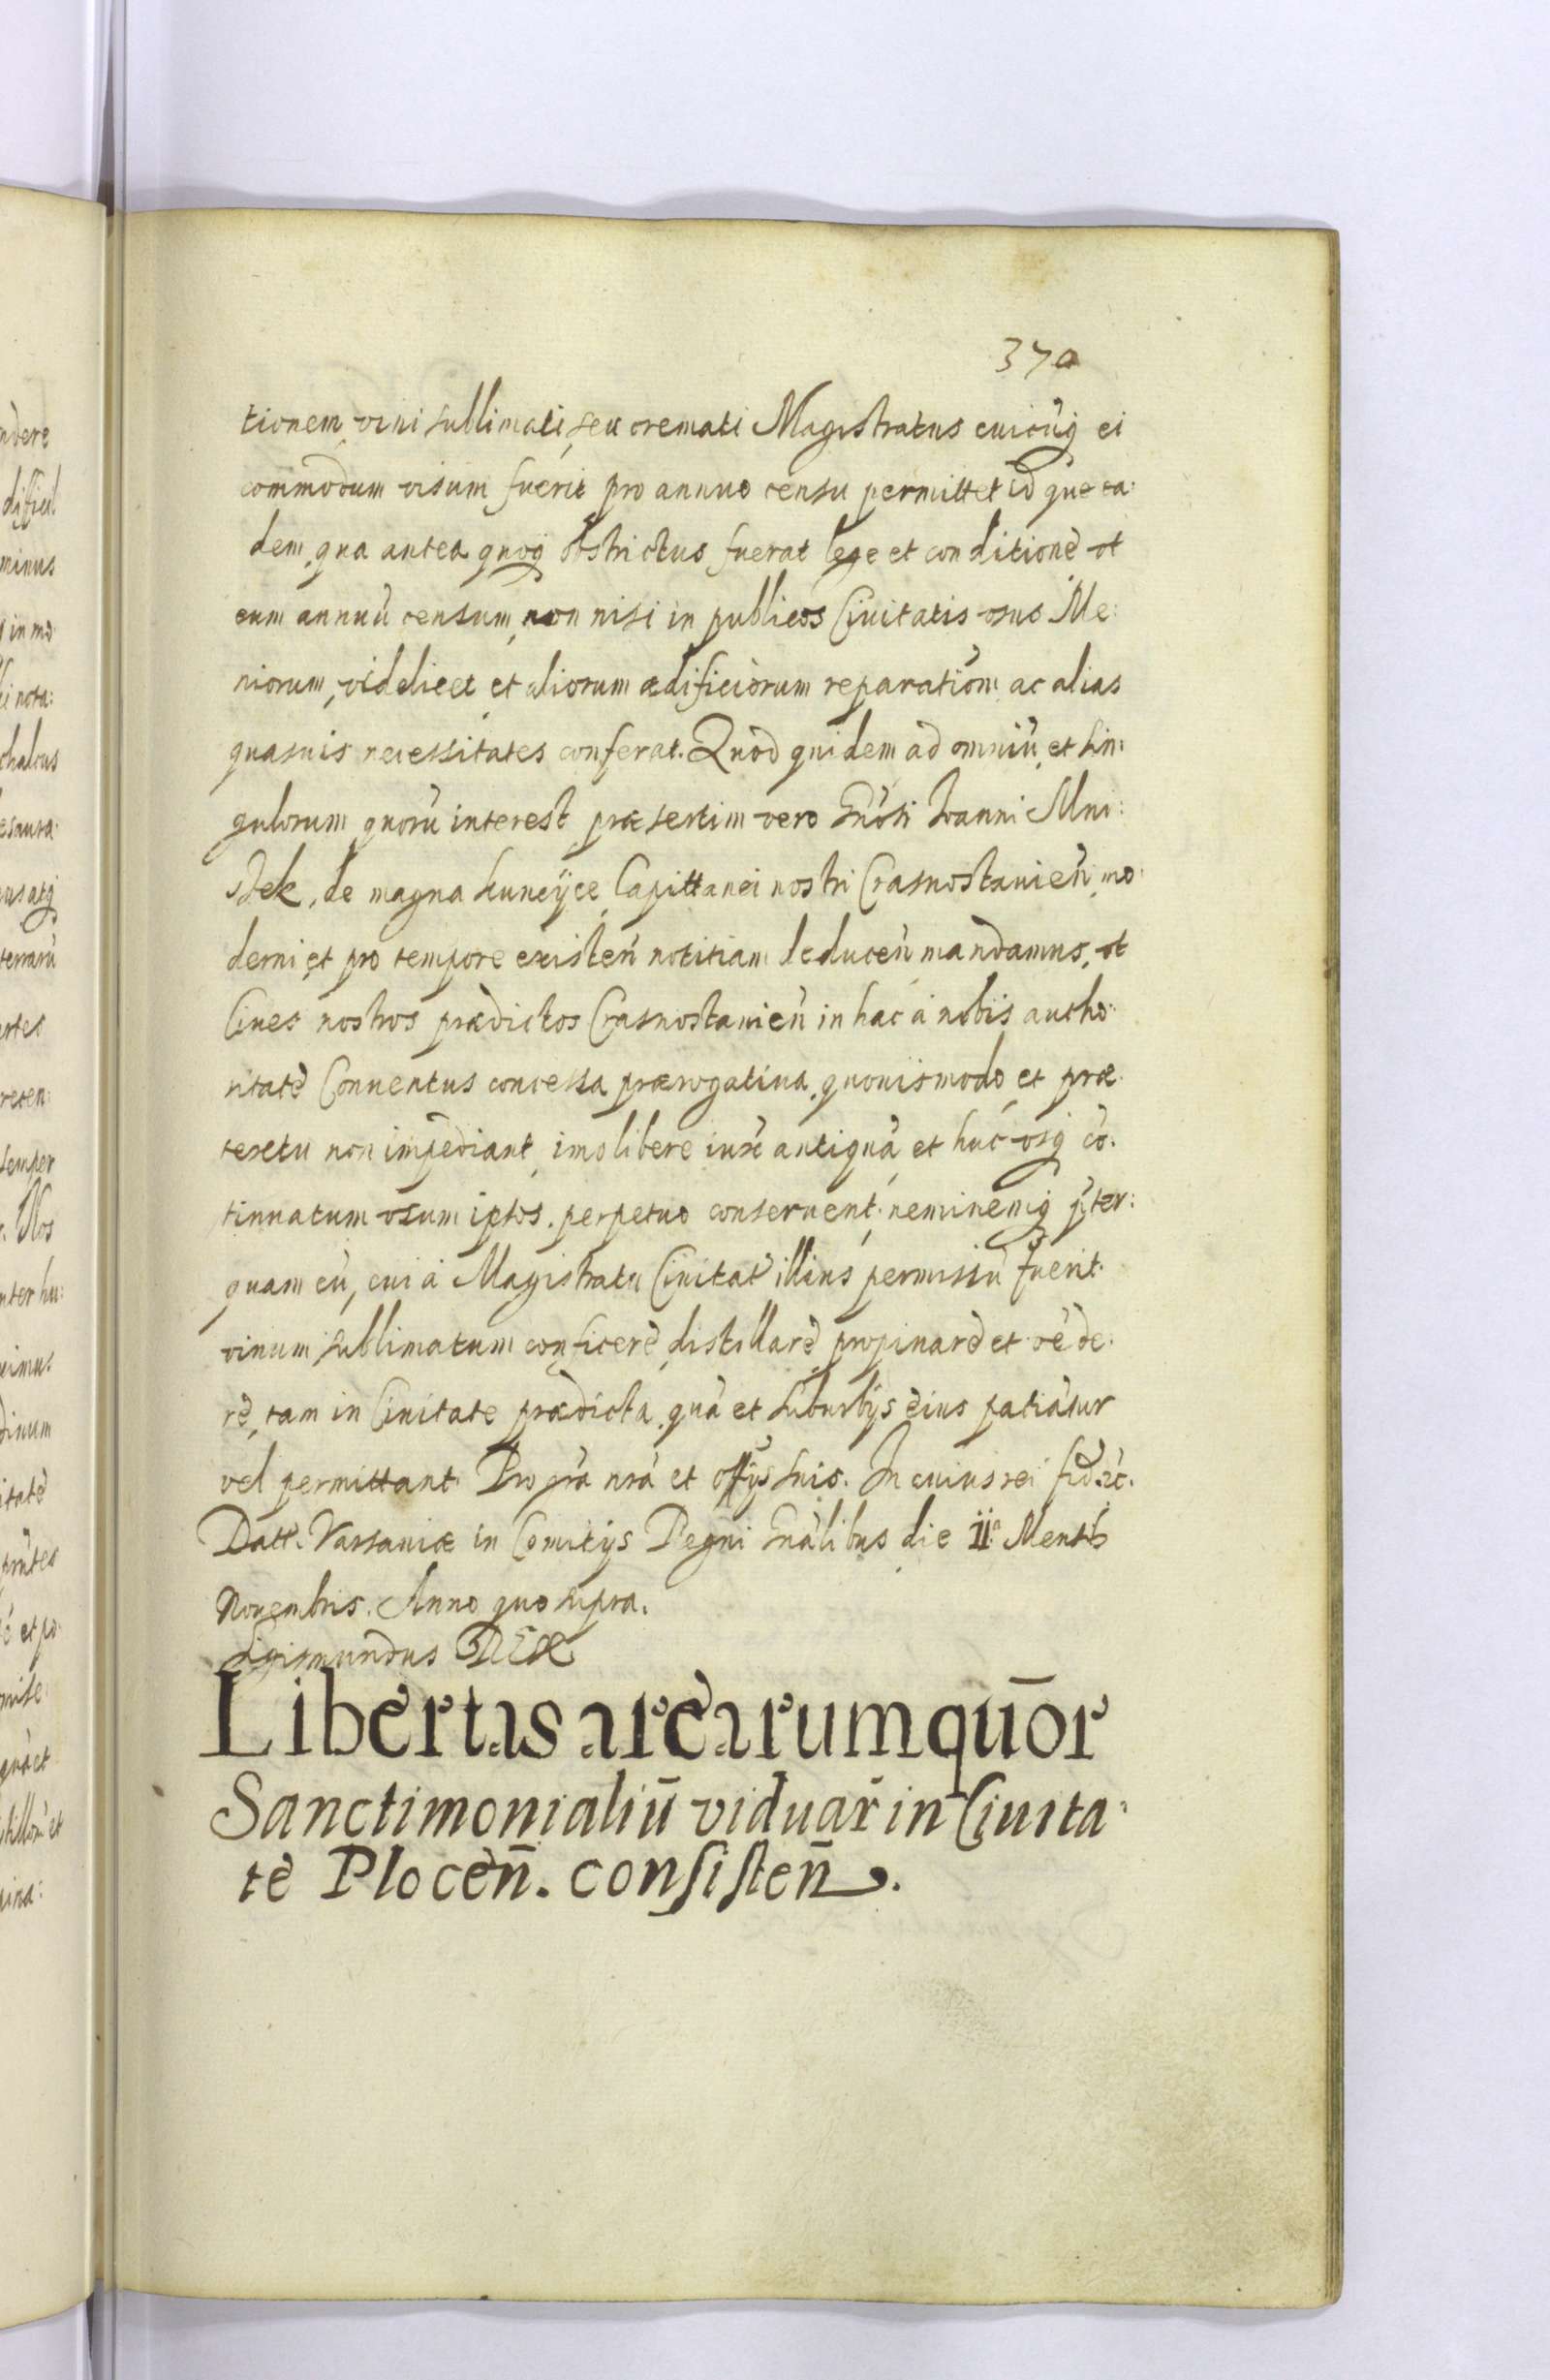 370
tionem vini sublimati, seu cremati Magistratus cuicūq ei
commodum visum fuerit pro annuo censu permittet id que ea:
dem, qua antea quoq obstrictus fuerat lege et conditione vt
eum annuū censum, non nisi in publicos Ciuitatis vsus Me:
niorum, videlicet et aliorum ædificiorum reparationē ac alias
quasuis necessitates conferat. Quod quidem ad omniū, et sin:
gulorum quorū interest præsertim vero Gnōsi Ioanni Mni:
szek, de magna kunczÿce Capittanei nostri Crasnostauien̄ mo:
derni et pro tempore existen̄ notitiam deducen̄ mandamus, vt
Ciues nostros prædictos Crasnostauien̄ in hac à nobis autho:
ritate Conuentus concessa prærogatiua, quouismodo et præ:
textu non impediant, imo libere iuxē antiquā et huc vsq cō:
tinuatum vsum ipsos. perpetuo conseruent, neminemq p̄ter:
quam eū, cui à Magistratu Ciuitat illius permissū fuerit
vinum sublimatum conficere, distillare, propinare et vēde:
re, tam in Ciuitate prædicta, quā et suburbijs eius patiātur
vel permittant. Pro grā nrā et offijs suis. In cuius rei fid. &c.
Datt. Varsauiæ in Comitijs Regni Gnālibus die II.a Mensis
Nouembris. Anno quo supra.
Sigismundus REX
Libertas arearum quōr
Sanctimonialiū viduar̄ in Ciuita:
te Plocen̄. consisten̄.
ndere
minus
in mo
i nota:
chalcus
terrarū
semper
Nos
dinum
itate
et po
quā et